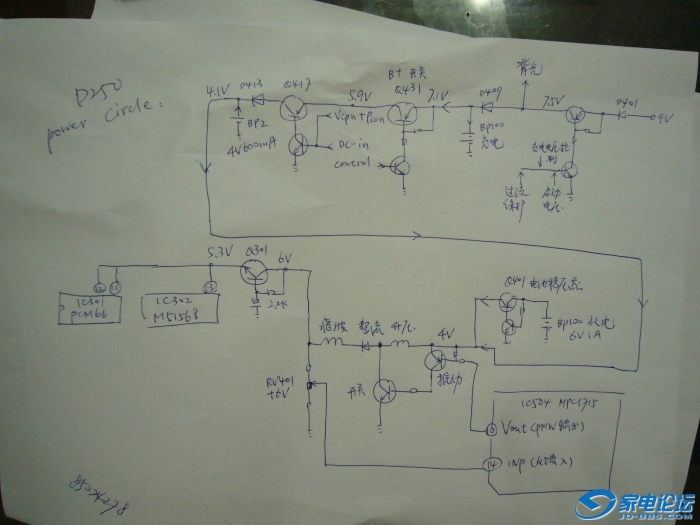 D250
power circle:
4.1V
D413
Q417
5.9V
B+ 开关
Q431
7.1V
D409
背光
7.5V
D401
9V
BP2
4V 600mA
Vcpu+Pcon
DC-in
control
BP100
充电
充电电压控制
过流保护
启动电压
5.3V
Q301
6V
2.2K
IC301
PCM66
IC302
M51568
13
滤波
整流
升压
4V
Q401 电池稳压态
BP100 供电
6V 1A
开关
推动
RV401
+6V
IC504 MPC1715
Vout (PMW输出)
14
INP (反馈入)
家电论坛
JD-BBS.COM